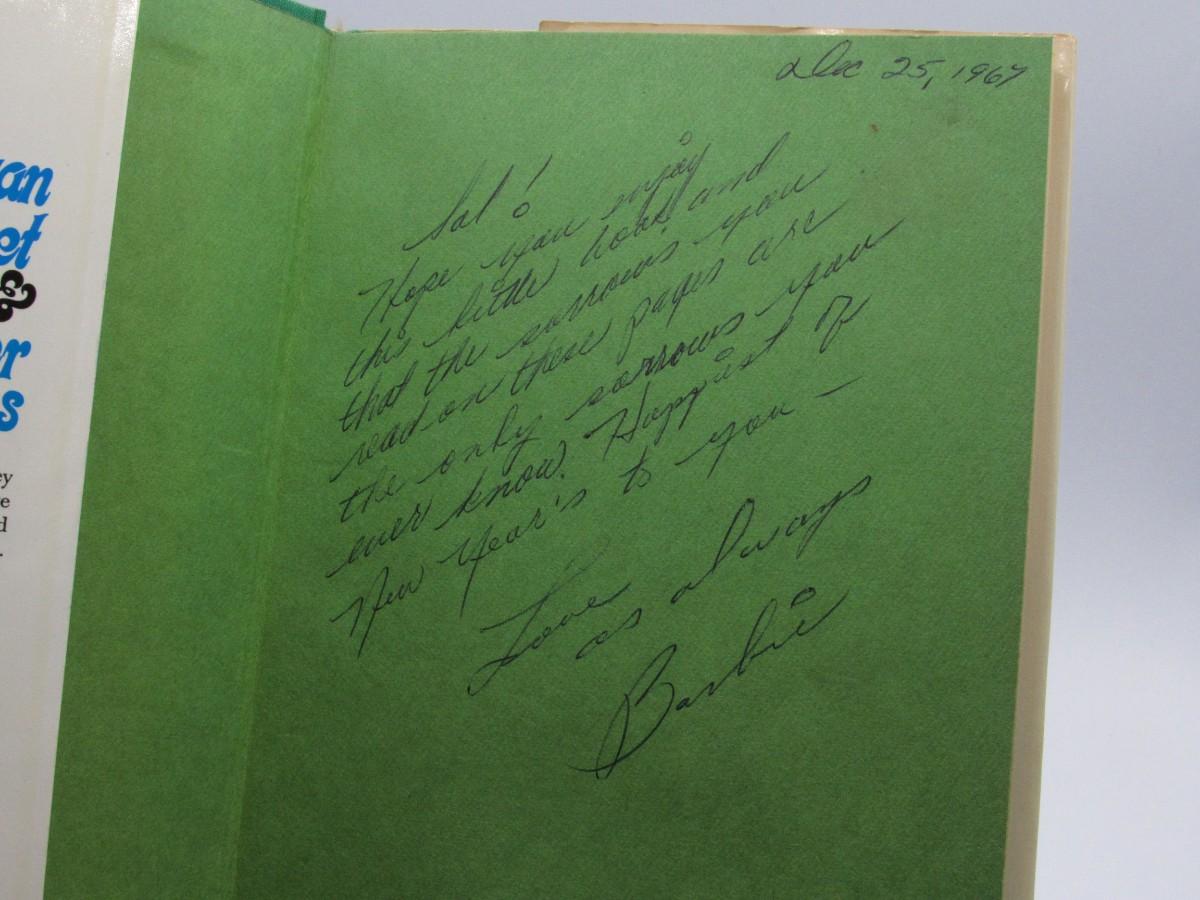 an
et
&
er
s
ey
e
d
.
Dec 25, 1967
Sal!
Hope you enjoy
this little book and
that the sorrows you
read on these pages are
the only sorrows you
ever know. Happiest of
New Year's to you –
Love
as always
Barbie